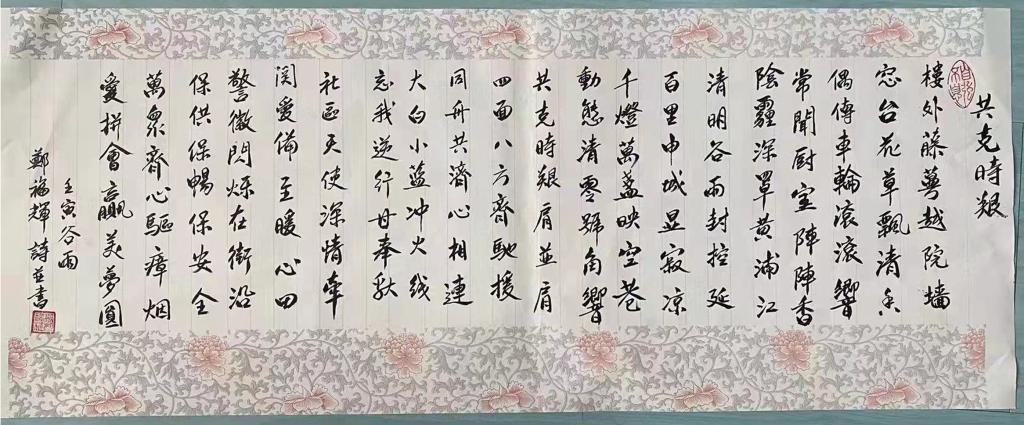 共克時艱
樓外藤蔓越院墻
窓台花草飄清香
偶傳車輪滾滾響
常聞厨室陣陣香
陰霾深罩黄浦江
清明谷雨封控延
百里申城显寂凉
千燈萬盞映空巷
動態清零號角響
共克時艱肩並肩
四面八方齊馳援
同舟共濟心相連
大白小藍冲火线
忘我逆行甘奉献
社區天使深情牽
関愛備至暖心田
警徽閃烁在街沿
保供保暢保安全
萬衆齊心驅瘴烟
愛拼會贏美夢圓
壬寅谷雨
鄭福輝詩並書